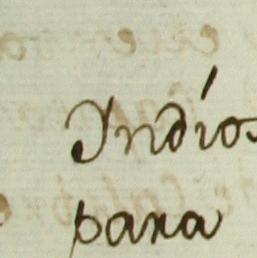 Indios
para